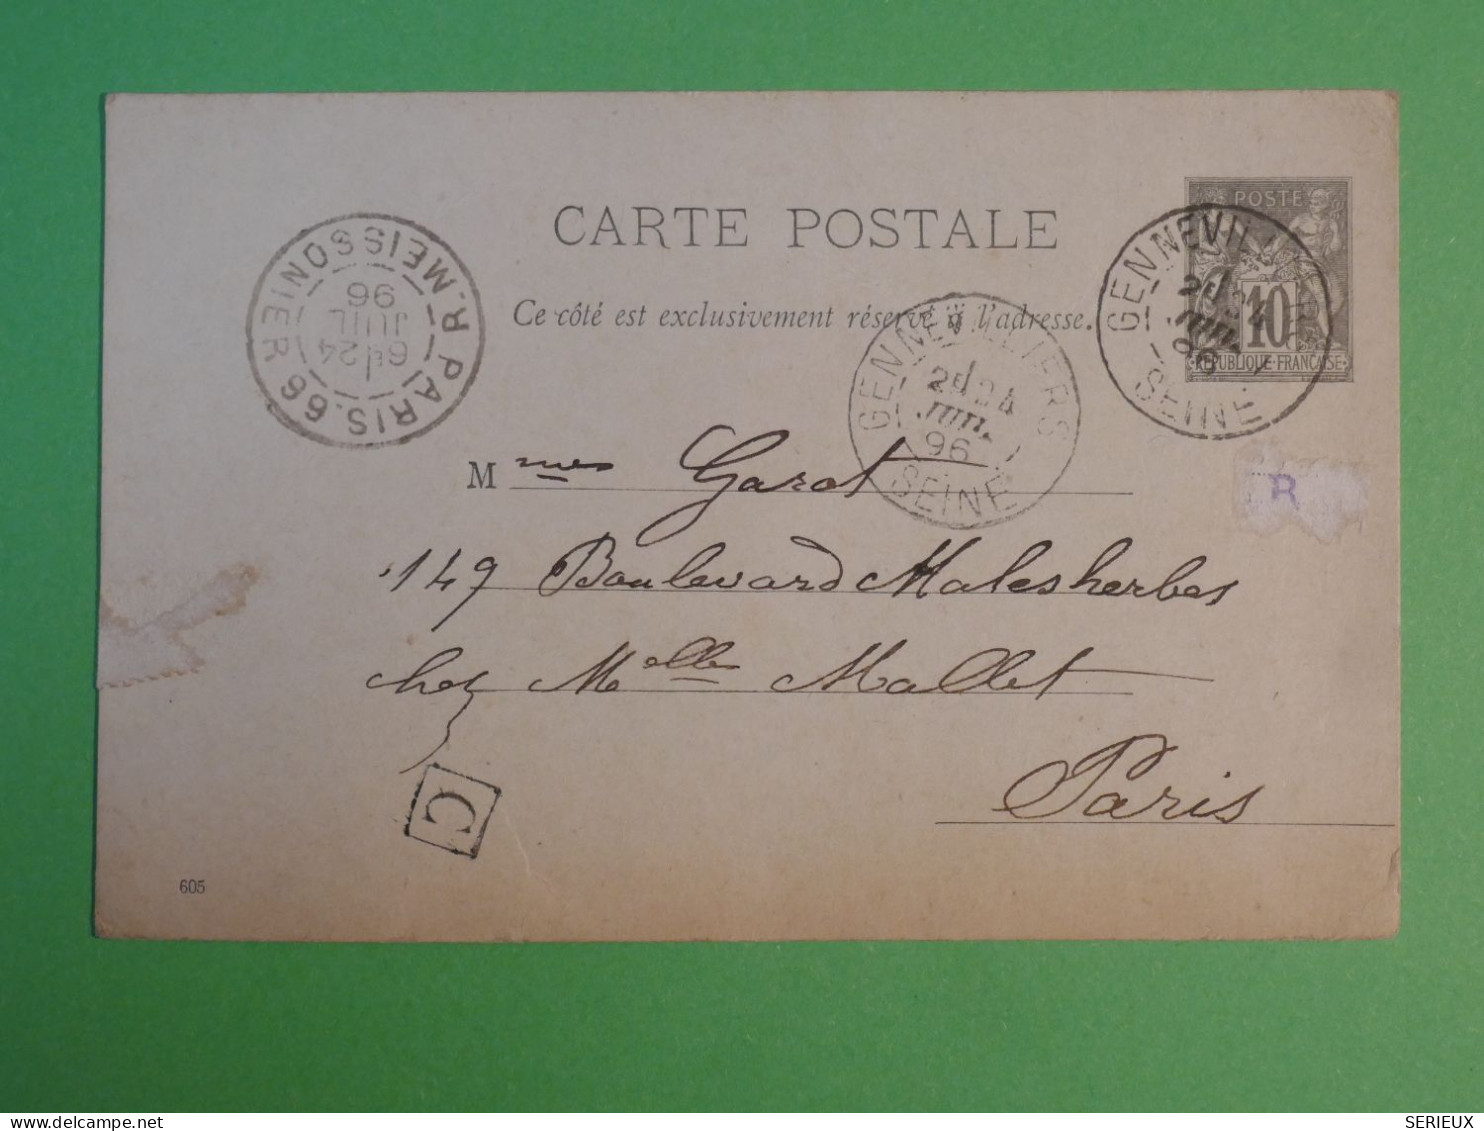 POSTE
10
REPUBLIQUE · FRANÇAISE
CARTE POSTALE
Ce côté est exclusivement réservé à l'adresse.
GENNEVILLIERS
2e 24
JUIL
96
SEINE
GENNEVILLIERS
2e 24
JUIL
96
SEINE
PARIS.66 R.MEISSONIER
6e 24
JUIL
96
Mmes Garot
149 Boulevard Malesherbes
chez Melle Mallet
Paris
R
C
605
SERIEUX